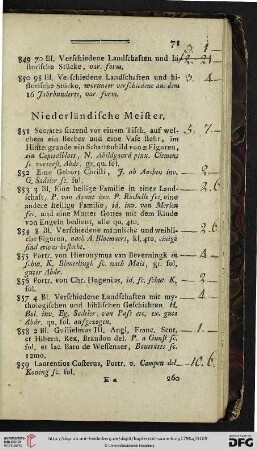 71
849 70 Bl. Verschiedene Landschaften und hi-
storische Stücke, var. form.
850 95 Bl. Veschiedene Landschaften und hi-
storische Stücke, worunter verschiedene aus dem
16 Jahrhundert, var. form.
3. 4
Niederländische Meister,
851 Socrates sitzend vor einem Tisch, auf wel-
chem ein Becher und eine Vase steht, im
Hintergrunde ein Schattenbild von 2 Figuren,
ein Capitalblatt, N. Abildgaard pinx. Clemens
sc. vortrefl. Abdr. gr. qu. fol.
5. 7
852 Eine Geburt Christi, J. ab Aachen inv.
G. Sadeler sc. fol.
2
853 3 Bl. Eine heilige Familie in einer Land-
schaft, P. van Avont inv. P. Rochelle fec. eine
andere heilige Familie, id. inv. van Merlen
fec. und eine Mutter Gottes mit dem Kinde
von Engeln bedient, alle qu. 4to.
2. 6
854 8 Bl. Verschiedene männliche und weibli-
che Figuren, nach A. Bloemaert, kl. 4to, einige
sind etwas befleckt.
2. 6
855 Portr. von Hieronymus van Beverningk in
K. Blotelingh sc. nach Maes, gr. fol.
guter Abdr.
856 Portr. von Chr. Hugenius, id. sc. schw. K.
fol.
2
857 4 Bl. Verschiedene Landschaften mit my-
thologischen und biblischen Geschichten H.
Bol. inv. Eg. Sadeler, van Pass etc. exc. gute
Abdr. qu. fol. aufgezogen.
4
858 2 Bl. Guilielmus III. Angl. Franc. Scot.
et Hibern. Rex, Brandon del. P. a Gunst sc.
fol. et Jac. Baro de Wassenaer, sc.
12mo.
859 Laurentius Costerus, Portr. v. Campen del.
Koning sc. fol.
10. 6
E 4
860
DFG